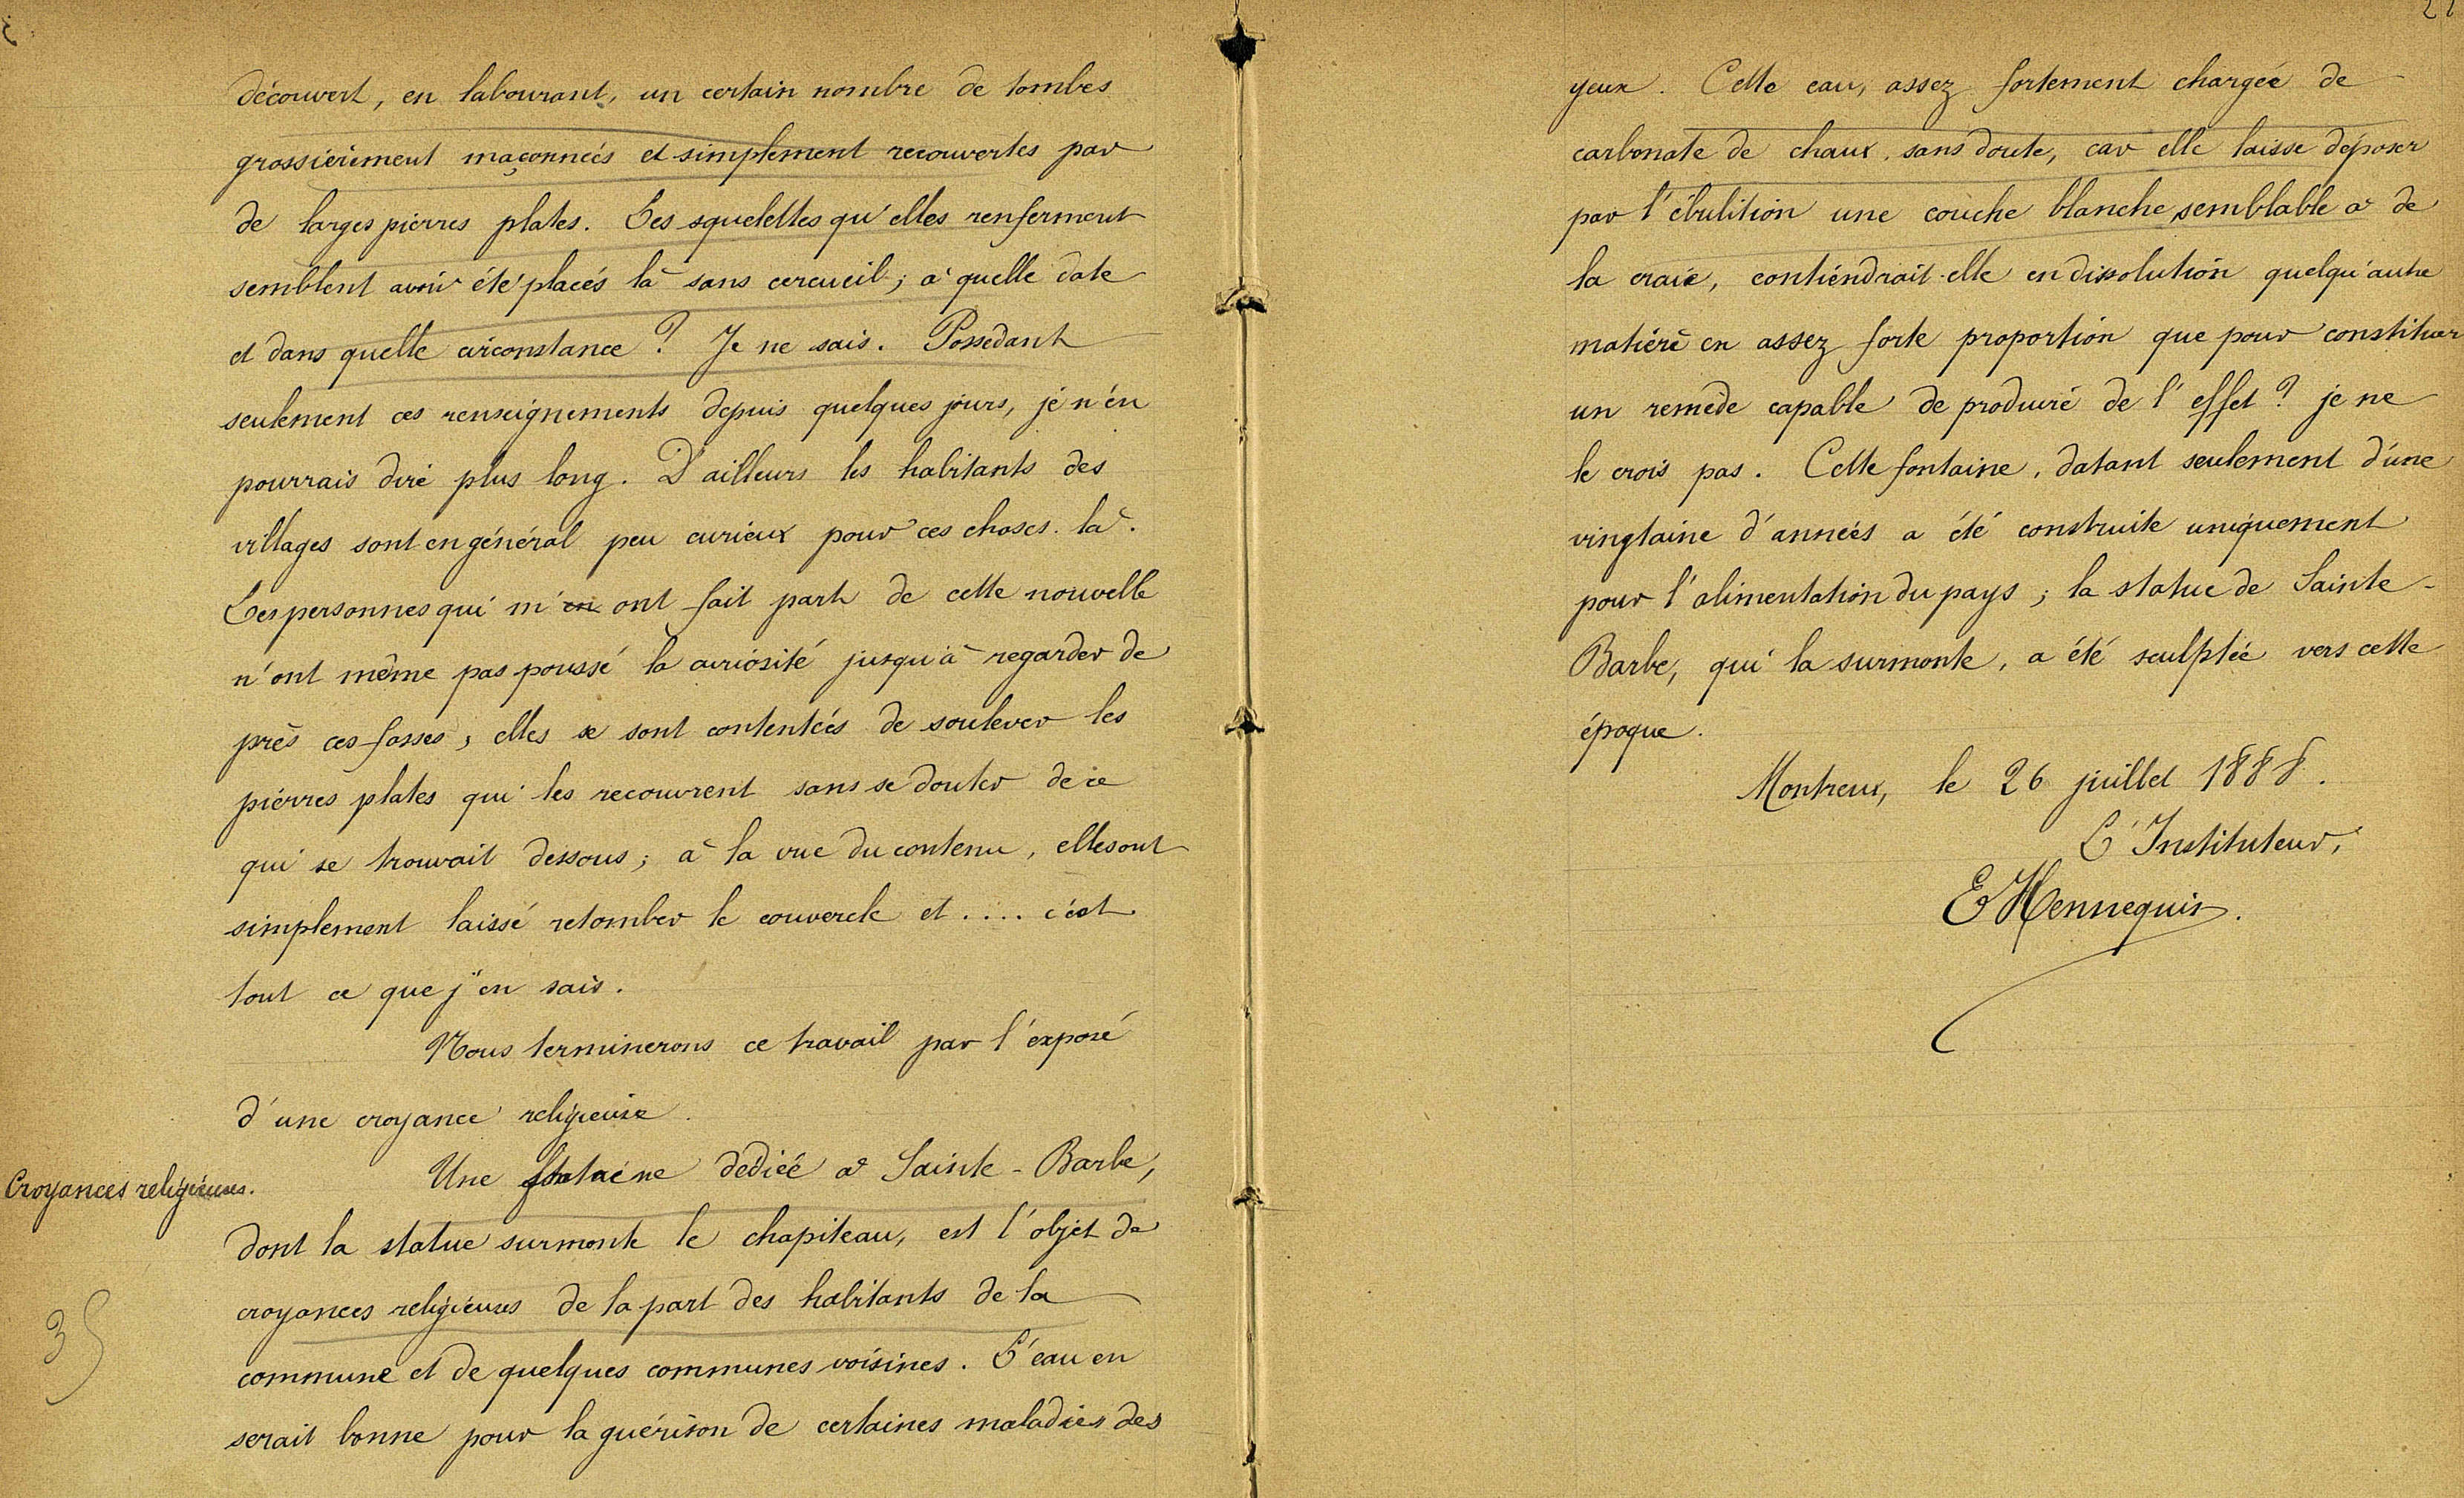 découvert, en labourant, un certain nombre de tombes
grossièrement maçonnées et simplement recouvertes par
de larges pierres plates. Les squelettes qu'elles renferment
semblent avoir été placés là sans cercueil; à quelle date
et dans quelle circonstance? Je ne sais. Possedant
seulement ces renseignements depuis quelques jours, je n'en
pourrais dire plus long. D'ailleurs les habitants des
villages sont en général peu curieux pour ces choses-là.
Les personnes qui m'en ont fait part de cette nouvelle
n'ont même pas poussé la curiosité jusqu'à regarder de
près ces fosses; elles se sont contentées de soulever les
pierres plates qui les recouvrent sans se douter de ce
qui se trouvait dessous; à la vue du contenu, elles ont
simplement laissé retomber le couvercle et .... c'est
tout ce que j'en sais.
Nous terminerons ce travail par l'exposé
d'une croyance religieuse.
Croyances religieuses.
Une fontaine dédiée à Sainte-Barbe,
dont la statue surmonte le chapiteau, est l'objet de
croyances religieuses de la part des habitants de la
35
commune et de quelques communes voisines. L'eau en
serait bonne pour la guérison de certaines maladies des
21
yeux. Cette eau, assez fortement chargée de
carbonate de chaux, sans doute, car elle laisse déposer
par l'ébulition une couche blanche semblable à de
la craie, contiendrait-elle en dissolution quelqu'autre
matière en assez forte proportion que pour constituer
un remède capable de produire de l'effet? je ne
le crois pas. Cette fontaine, datant seulement d'une
vingtaine d'années a été construite uniquement
pour l'alimentation du pays; la statue de Sainte-
Barbe, qui la surmonte, a été sculptée vers cette
époque.
Montreux, le 26 juillet 1888.
L'Instituteur,
E Hennequin.